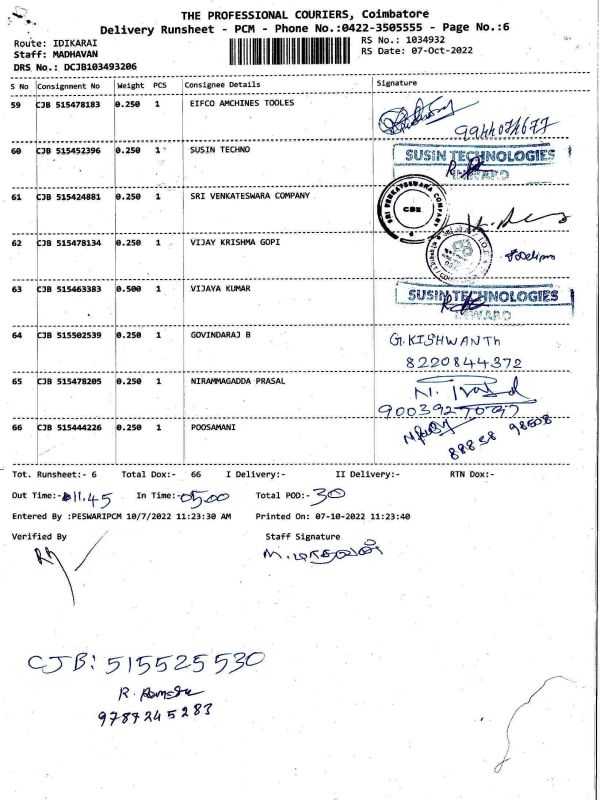 THE PROFESSIONAL COURIERS, Coimbatore
Delivery Runsheet - PCM - Phone No.:0422-3505555 - Page No.:6
Route: IDIKARAI
RS No.: 1034932
Staff: MADHAVAN
RS Date: 07-Oct-2022
DRS No.: DCJB103493206
S No Consignment No Weight PCS Consignee Details Signature
59 CJB 515478183 0.250 1 EIFCO AMCHINES TOOLES
60 CJB 515452396 0.250 1 SUSIN TECHNO SUSIN TECHNOLOGIES
INWARD
61 CJB 515424881 0.250 1 SRI VENKATESWARA COMPANY SRI VENKATESWARA COMPANY CBE
62 CJB 515478134 0.250 1 VIJAY KRISHMA GOPI
63 CJB 515463383 0.500 1 VIJAYA KUMAR SUSIN TECHNOLOGIES
INWARD
64 CJB 515502539 0.250 1 GOVINDARAJ B G.KISHWANTH
8220844372
65 CJB 515478205 0.250 1 NIRAMMAGADDA PRASAL
66 CJB 515444226 0.250 1 POOSAMANI
88838 98508
Tot. Runsheet:- 6 Total Dox:- 66 I Delivery:- II Delivery:- RTN Dox:-
Out Time:- 11.45 In Time:- 05.00 Total POD:- 30
Entered By :PESWARIPCM 10/7/2022 11:23:30 AM Printed On: 07-10-2022 11:23:40
Verified By Staff Signature
CJB: 515525530
9787245283